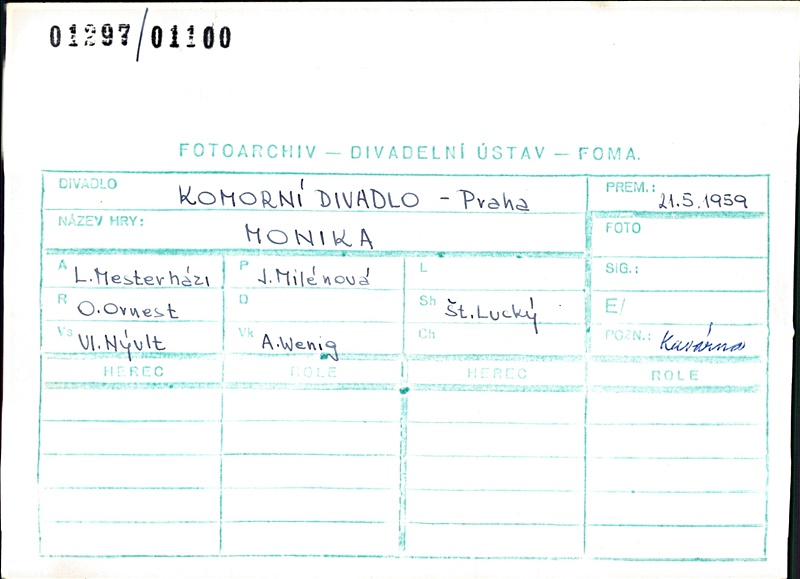 01297/01100
FOTOARCHIV — DIVADELNÍ ÚSTAV — FOMA.
DIVADLO KOMORNÍ DIVADLO - Praha PREM.: 21.5.1959
NÁZEV HRY: MONIKA FOTO
A L.Mesterházi P J.Milénová L SIG.:
R O.Ornest D Sh Št.Lucký E/
Vs Vl.Nývlt Vk A.Wenig Ch POZN.: Kavárna
HEREC ROLE HEREC ROLE